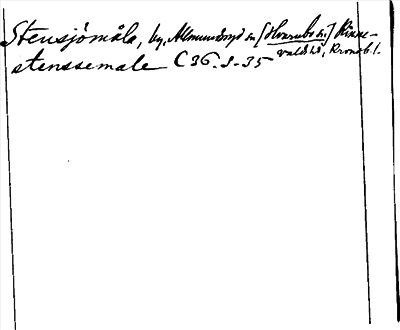 Stensjömåla, by, Almundsryd sn [Hvarnbo sn.] Kinne-
valds hd, Kronob. l.
stenssemale C 36.I-35